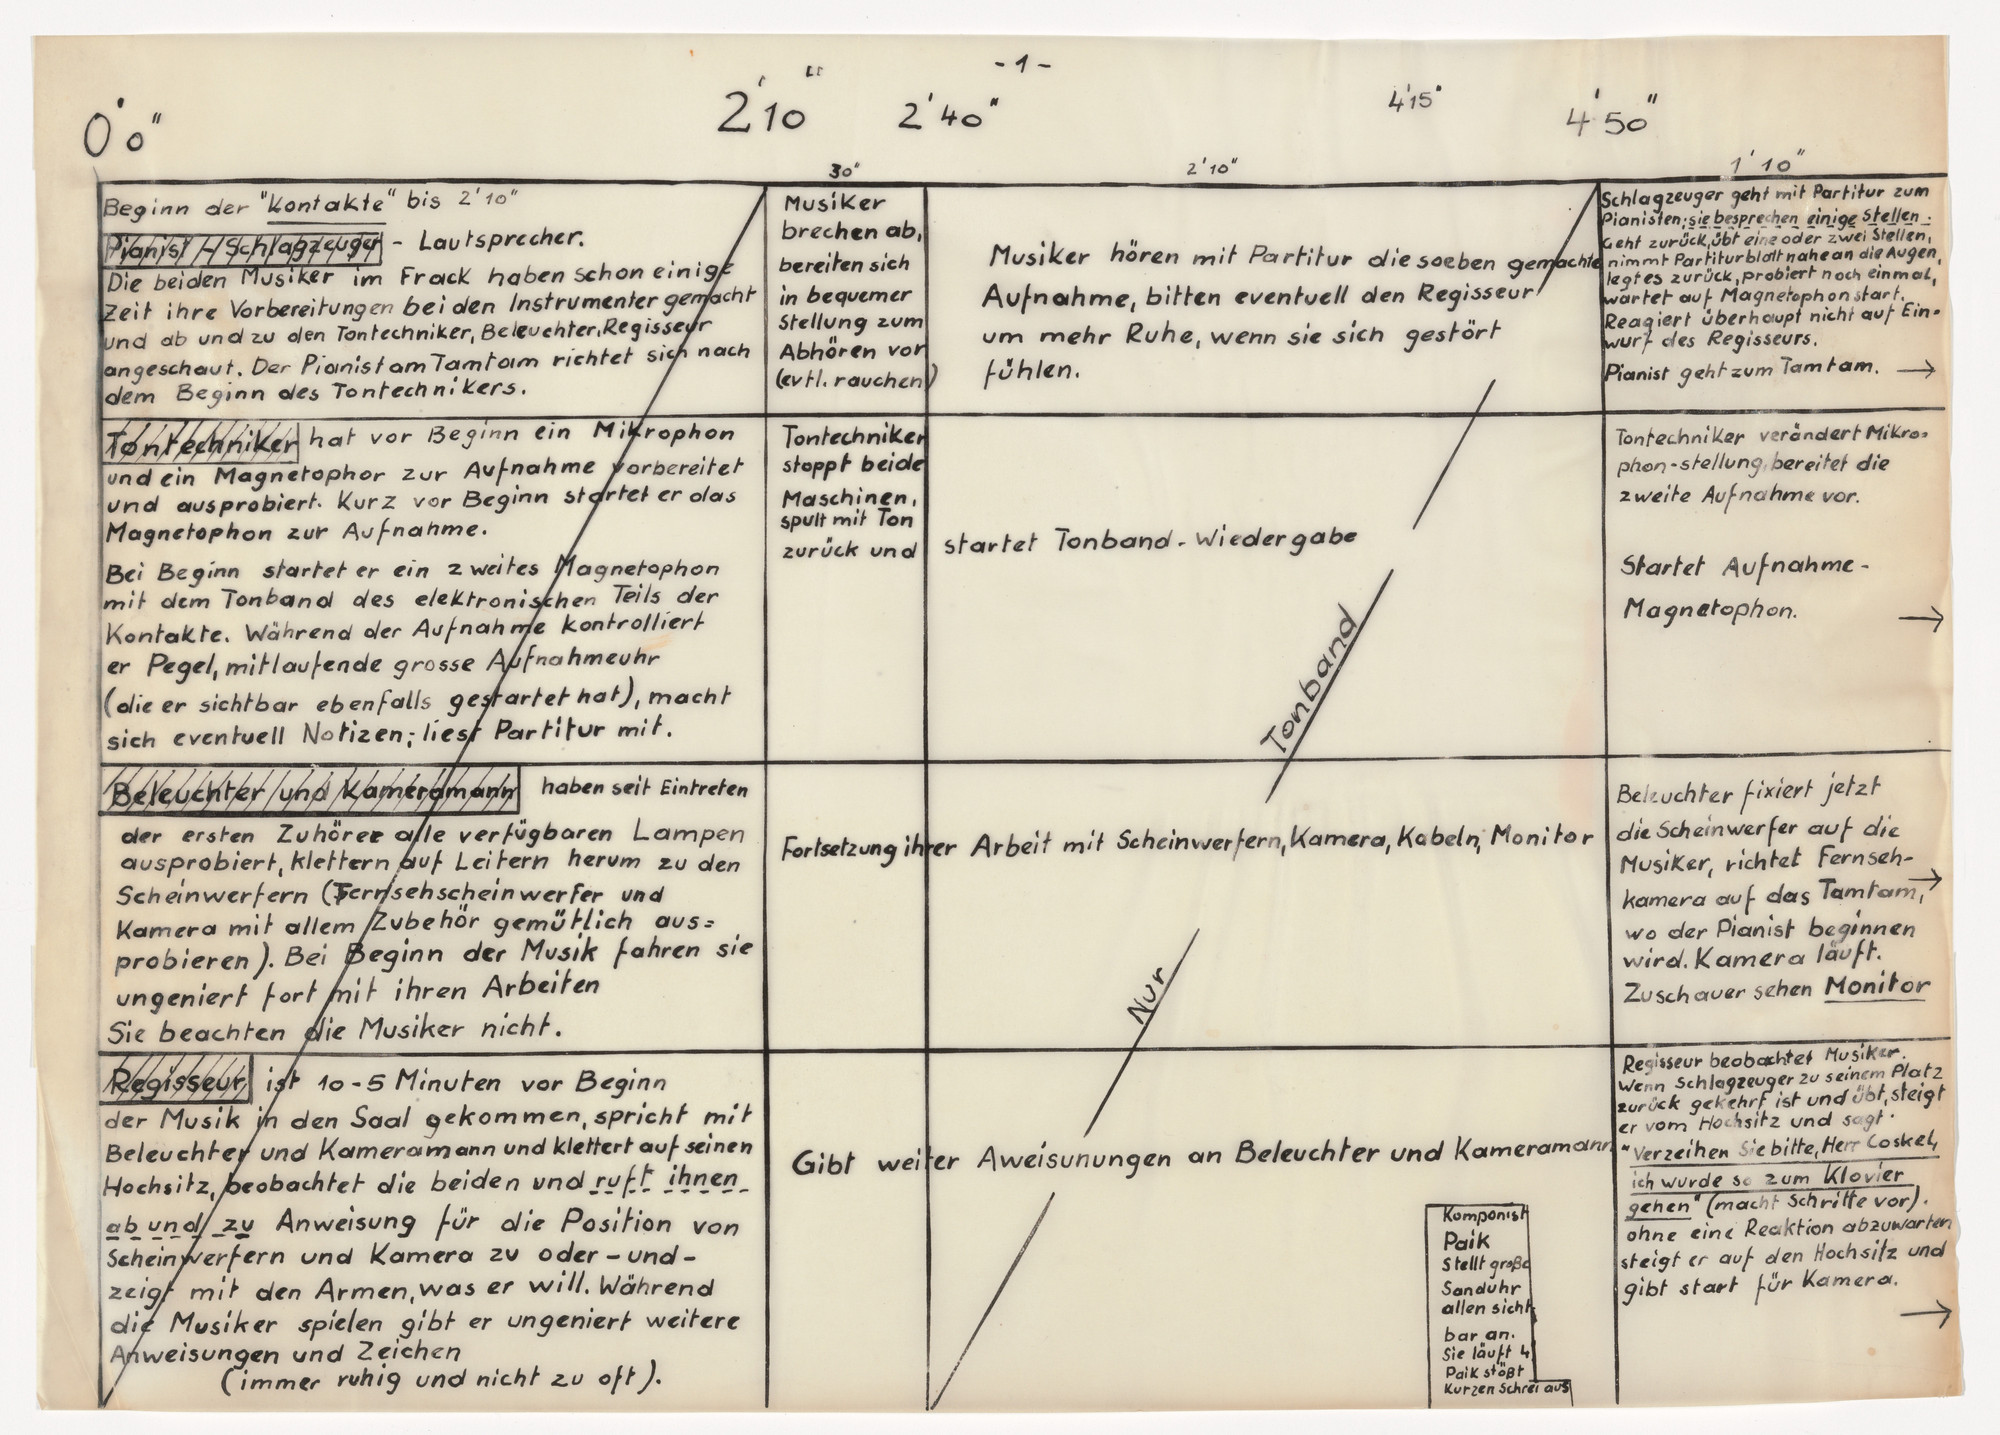 - 1 -
0' 0"
2' 10"
2' 40"
4' 15"
4' 50"
30"
2' 10"
1' 10"
Beginn der "Kontakte" bis 2' 10"
Pianist - Schlagzeuger - Lautsprecher.
Die beiden Musiker im Frack haben schon einige
Zeit ihre Vorbereitungen bei den Instrumenten gemacht
und ab und zu den Tontechniker, Beleuchter, Regisseur
angeschaut. Der Pianist am Tamtam richtet sich nach
dem Beginn des Tontechnikers.
Musiker
brechen ab,
bereiten sich
in bequemer
Stellung zum
Abhören vor
(evtl. rauchen)
Musiker hören mit Partitur die soeben gemachte
Aufnahme, bitten eventuell den Regisseur
um mehr Ruhe, wenn sie sich gestört
fühlen.
Schlagzeuger geht mit Partitur zum
Pianisten; sie besprechen einige Stellen.
Geht zurück, übt eine oder zwei Stellen,
nimmt Partiturblatt nahe an die Augen,
legt es zurück, probiert noch einmal,
wartet auf Magnetophonstart.
Reagiert überhaupt nicht auf Ein=
wurf des Regisseurs.
Pianist geht zum Tamtam. →
Tontechniker hat vor Beginn ein Mikrophon
und ein Magnetophon zur Aufnahme vorbereitet
und ausprobiert. Kurz vor Beginn startet er das
Magnetophon zur Aufnahme.
Bei Beginn startet er ein zweites Magnetophon
mit dem Tonband des elektronischen Teils der
Kontakte. Während der Aufnahme kontrolliert
er Pegel, mitlaufende grosse Aufnahmeuhr
(die er sichtbar ebenfalls gestartet hat), macht
sich eventuell Notizen; liest Partitur mit.
Tontechniker
stoppt beide
Maschinen,
spult mit Ton
zurück und
startet Tonband-Wiedergabe
Tonband
Tontechniker verändert Mikro=
phon-stellung, bereitet die
zweite Aufnahme vor.
Startet Aufnahme-
Magnetophon. →
Beleuchter und Kameramann haben seit Eintreten
der ersten Zuhörer alle verfügbaren Lampen
ausprobiert, klettern auf Leitern herum zu den
Scheinwerfern (Fernsehscheinwerfer und
Kamera mit allem Zubehör gemütlich aus=
probieren). Bei Beginn der Musik fahren sie
ungeniert fort mit ihren Arbeiten
Sie beachten die Musiker nicht.
Fortsetzung ihrer Arbeit mit Scheinwerfern, Kamera, Kabeln, Monitor
Nur
Beleuchter fixiert jetzt
die Scheinwerfer auf die
Musiker, richtet Fernseh-
kamera auf das Tamtam, →
wo der Pianist beginnen
wird. Kamera läuft.
Zuschauer sehen Monitor
Regisseur ist 10-5 Minuten vor Beginn
der Musik in den Saal gekommen, spricht mit
Beleuchter und Kameramann und klettert auf seinen
Hochsitz, beobachtet die beiden und ruft ihnen
ab und zu Anweisung für die Position von
Scheinwerfern und Kamera zu oder-und-
zeigt mit den Armen, was er will. Während
die Musiker spielen gibt er ungeniert weitere
Anweisungen und Zeichen
(immer ruhig und nicht zu oft).
Gibt weiter Aweisunungen an Beleuchter und Kameramann
Komponist
Paik
stellt große
Sanduhr
allen sicht
bar an.
Sie läuft 4'
Paik stößt
Kurzen Schrei aus
Regisseur beobachtet Musiker.
Wenn Schlagzeuger zu seinem Platz
zurück gekehrt ist und übt, steigt
er vom Hochsitz und sagt:
"Verzeihen Sie bitte, Herr Caskel,
ich würde so zum Klavier
gehen" (macht Schritte vor).
ohne eine Reaktion abzuwarten
steigt er auf den Hochsitz und
gibt start für Kamera.
→